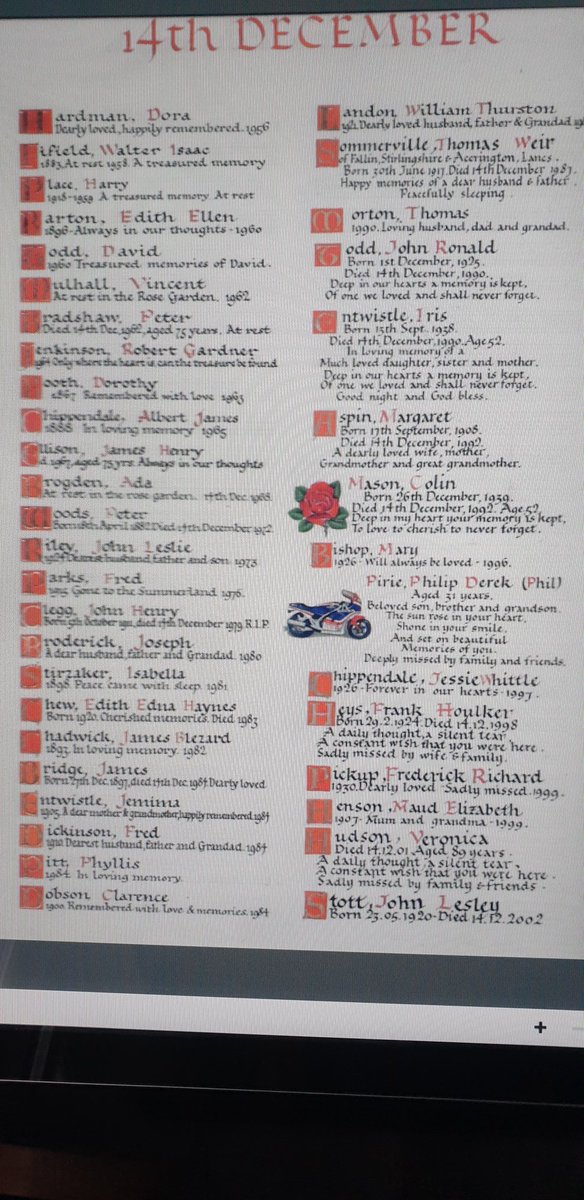 14th DECEMBER
Hardman, Dora
Dearly loved, happily remembered. 1956
Fifield, Walter Isaac
1883. At rest 1958. A treasured memory
Place, Harry
1918-1959 A treasured memory. At rest
Barton, Edith Ellen
1896-Always in our thoughts-1960
Dodd, David
1960 Treasured memories of David.
Mulhall, Vincent
At rest in the Rose Garden. 1962
Bradshaw, Peter
Died 14th Dec, 1962, aged 75 years. At rest
Jenkinson, Robert Gardner
Only where the heart is, can the treasure be found
Booth, Dorothy
1867 Remembered with love 1963
Chippendale, Albert James
1888 In loving memory 1965
Collison, James Henry
d. 1967, aged 75 yrs. Always in our thoughts
Frogden, Ada
At rest in the rose garden. 14th Dec. 1968.
Woods, Peter
Born 18th April 1882 Died 14th December 1972.
Riley, John Leslie
1924 Dearest husband, father and son. 1973
Parks, Fred
1915 Gone to the Summerland. 1976.
Clegg, John Henry
Born 5th October 1911, died 14th December 1979. R.I.P.
Broderick, Joseph
A dear husband, father and Grandad. 1980
Stirzaker, Isabella
1898. Peace came with sleep. 1981
Chew, Edith Edna Haynes
Born 1920. Cherished memories. Died 1983
Chadwick, James Blezard
1893. In loving memory. 1982
Bridge, James
Born 27th Dec. 1897, died 14th Dec. 1984 Dearly loved
Entwistle, Jemima
1905. A dear mother & grandmother, happily remembered. 1984
Dickinson, Fred
1910 Dearest husband, father and Grandad. 1984
Pitt, Phyllis
1984. In loving memory.
Dobson Clarence
1900. Remembered with love & memories. 1984
Landon, William Thurston
Dearly loved husband, father & Grandad
Sommerville, Thomas Weir
of Fallin, Stirlingshire & Accrington, Lancs.
Born 30th June 1917. Died 14th December 1987.
Happy memories of a dear husband & father.
Peacefully sleeping.
Morton, Thomas
1990. Loving husband, dad and grandad.
Todd, John Ronald
Born 1st December, 1925.
Died 14th December, 1990.
Deep in our hearts a memory is kept,
Of one we loved and shall never forget.
Entwistle, Iris
Born 13th Sept. 1938.
Died 14th December, 1990. Age 52.
In loving memory of a
Much loved daughter, sister and mother.
Deep in our hearts a memory is kept,
Of one we loved and shall never forget.
Good night and God bless.
Aspin, Margaret
Born 17th September, 1908.
Died 14th December, 1992.
A dearly loved wife, mother,
Grandmother and great grandmother.
Mason, Colin
Born 26th December, 1939.
Died 14th December, 1992. Age 52.
Deep in my heart your memory is kept,
To love to cherish to never forget.
Bishop, Mary
1926 - Will always be loved - 1996.
Pirie, Philip Derek (Phil)
Aged 31 years.
Beloved son, brother and grandson.
The sun rose in your heart,
Shone in your smile,
And set on beautiful
Memories of you.
Deeply missed by family and friends.
Chippendale, Jessie Whittle
1926 - Forever in our hearts - 1997.
Heys, Frank Houlker
Born 29.2.1924. Died 14.12.1998
A daily thought, a silent tear
A constant wish that you were here.
Sadly missed by wife & family.
Pickup, Frederick Richard
1930. Dearly loved - Sadly missed. 1999.
Henson, Maud Elizabeth
1907 - Mum and grandma - 1999.
Hudson, Veronica
Died 14.12.01. Aged 89 years.
A daily thought, a silent tear,
A constant wish that you were here.
Sadly missed by family & friends.
Stott, John Lesley
Born 23.05.1920 - Died 14.12.2002